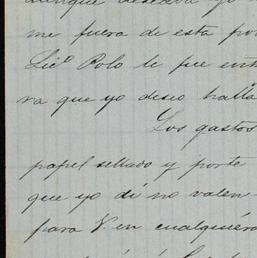 aunque deseara yo
me fuera de esta po
Lic.º Polo le fue ent
ra que yo deseo halla
Los gastos
papel sellado y porte
que yo dí no valen
para V en cualquiera